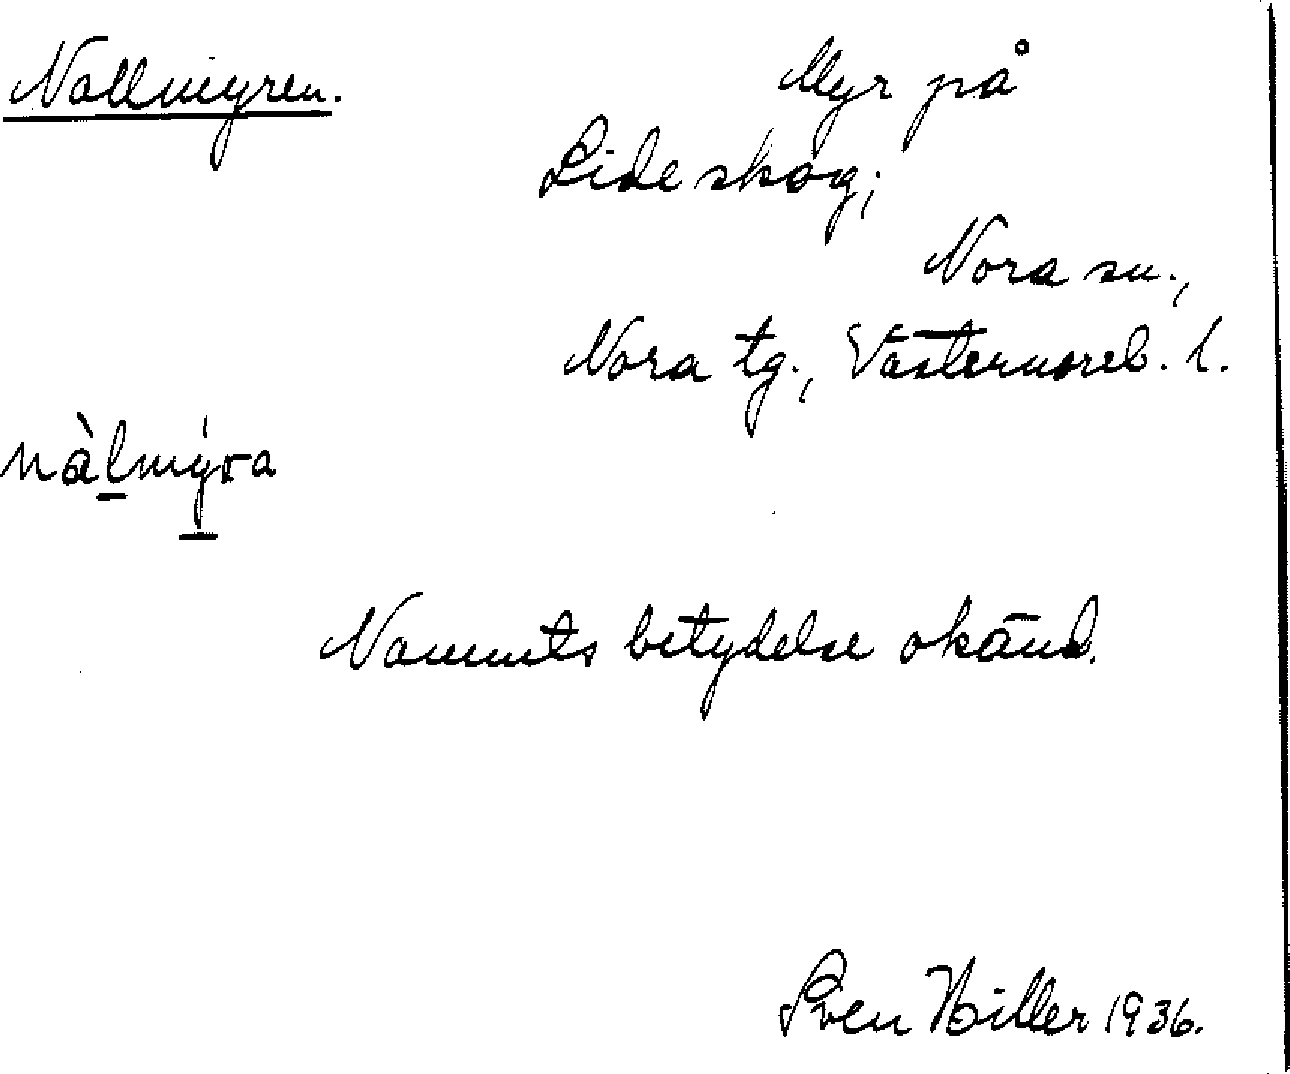 Nallmyren.
Myr på
Lide skog;
Nora sn.,
Nora tg., Västernorrl. l.
nàlmýra
Namnets betydelse okänd.
Sven Hiller 1936.